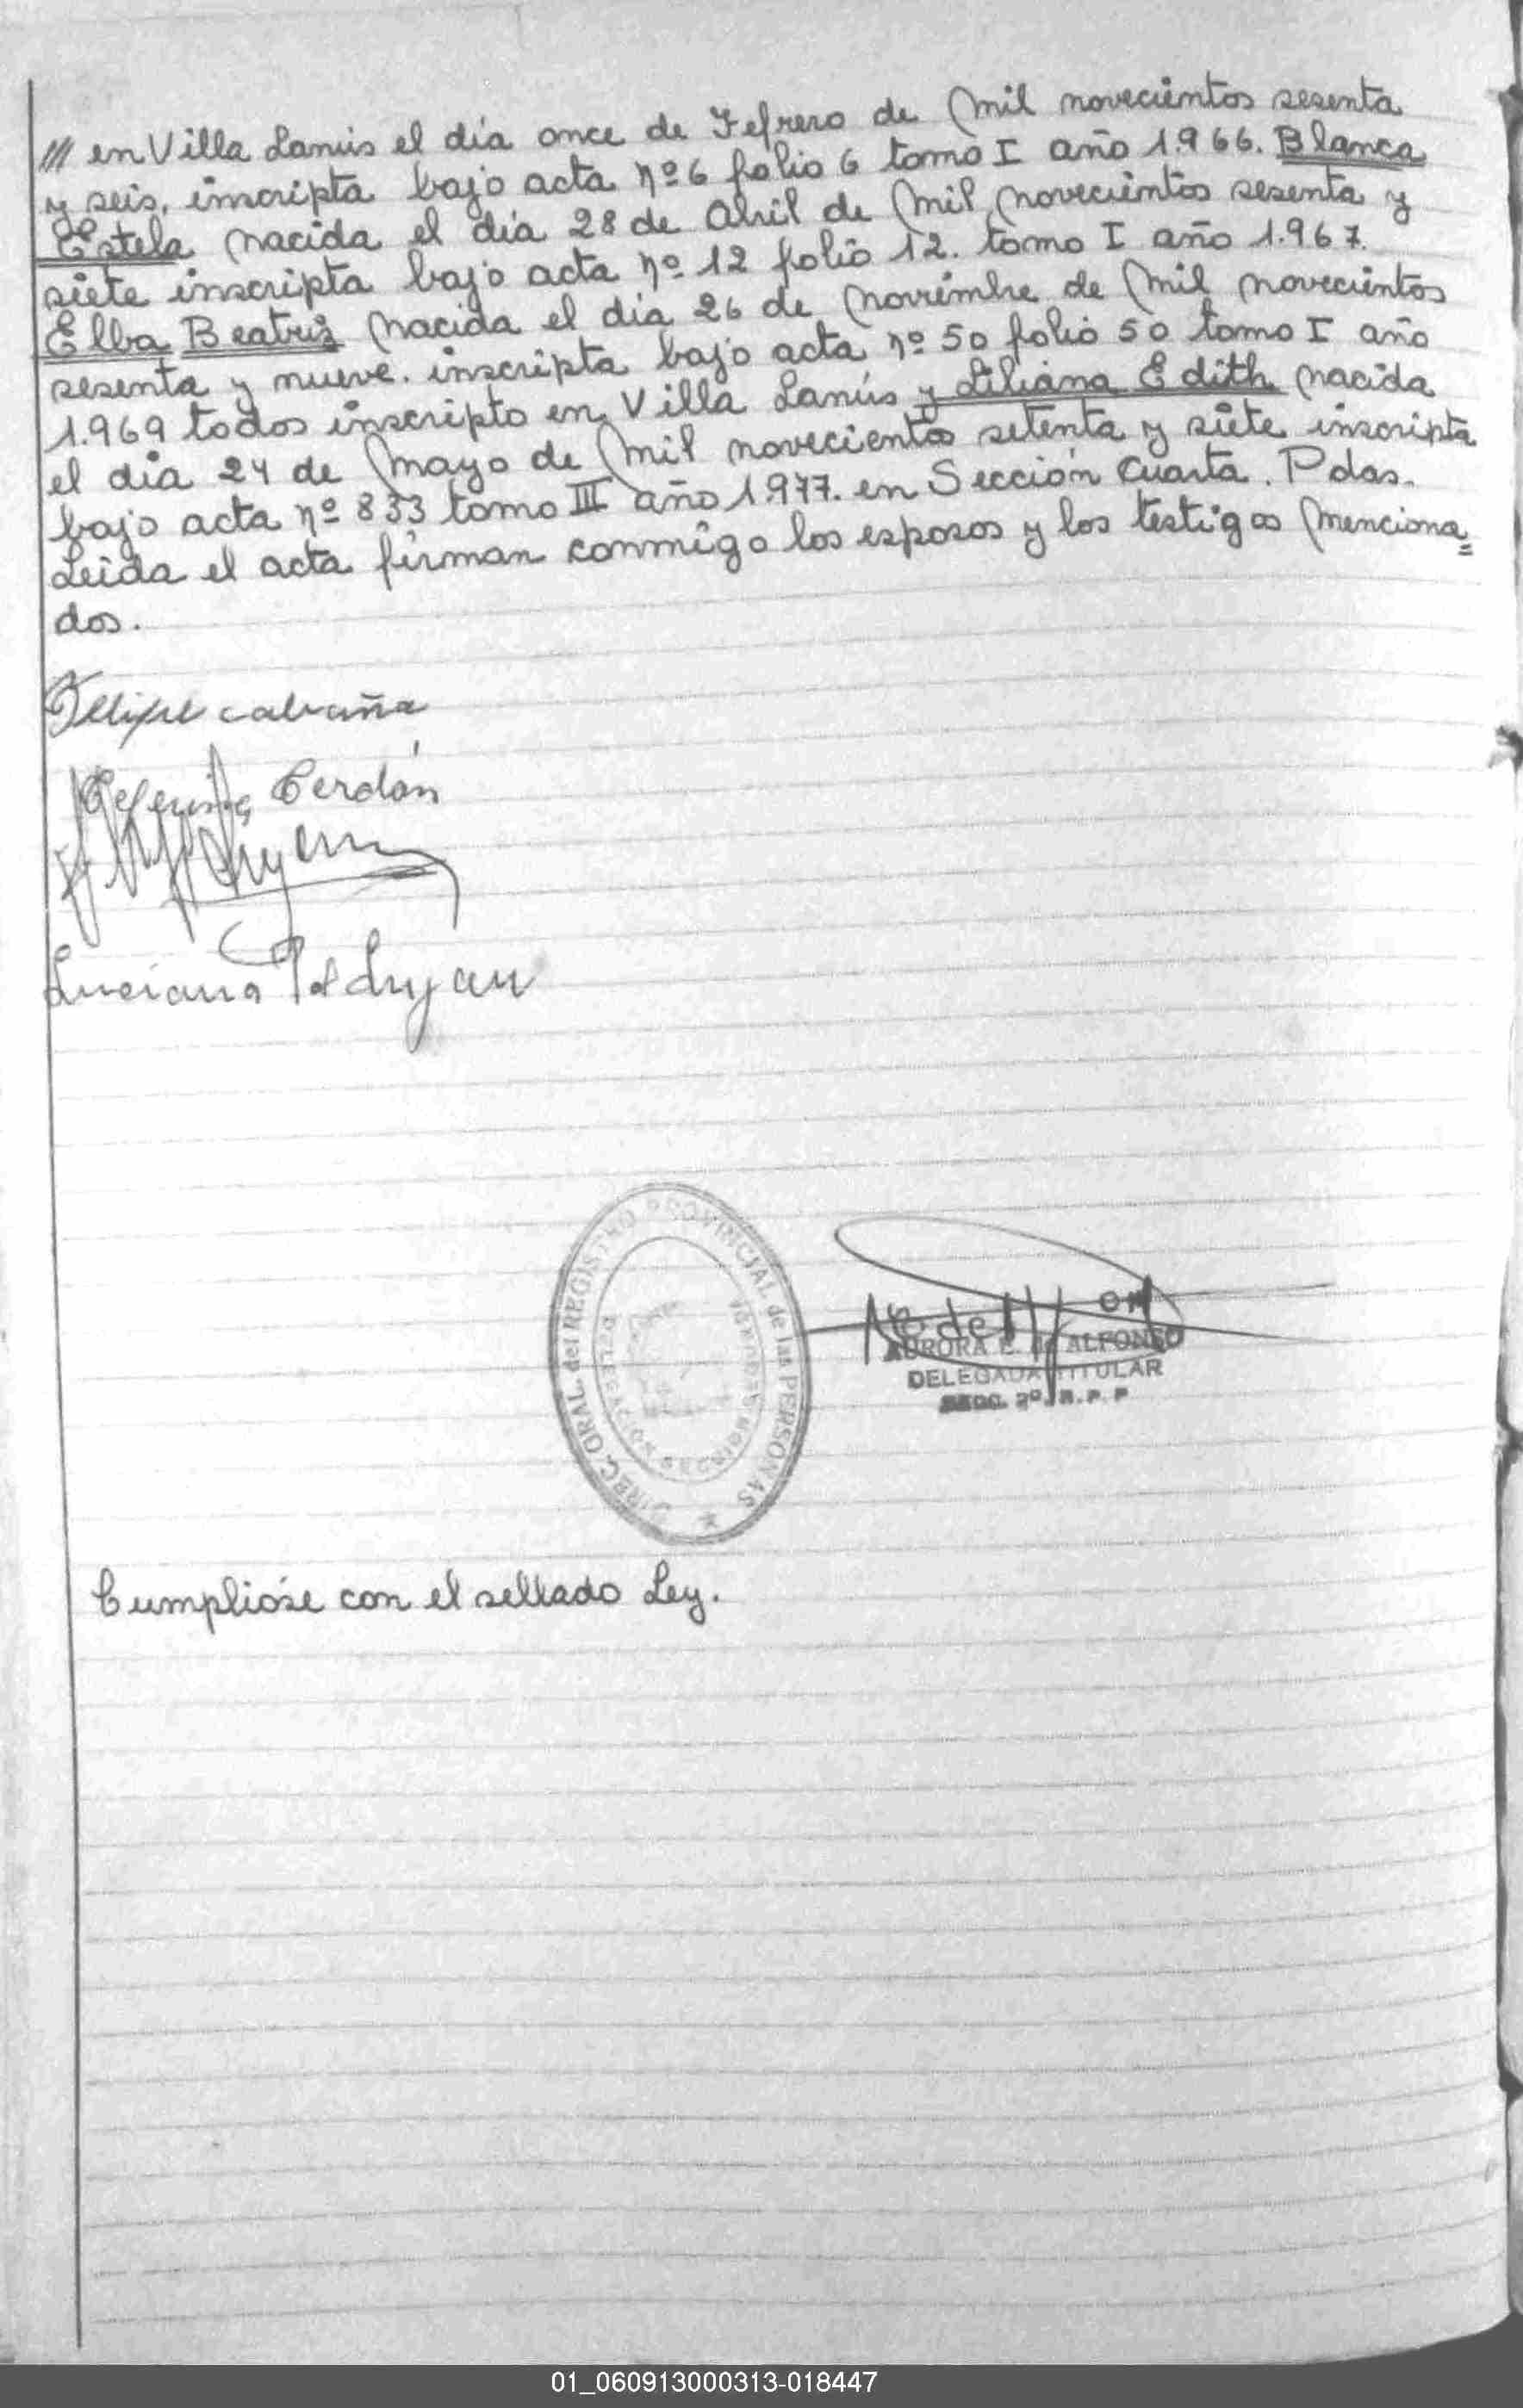 /// en Villa Lanús el día once de Febrero de Mil novecientos sesenta
y seis, inscripta bajo acta nº 6 folio 6 tomo I año 1.966. Blanca
Estela nacida el día 28 de Abril de Mil novecientos sesenta y
siete inscripta bajo acta nº 12 folio 12. tomo I año 1.967.
Elba Beatriz nacida el día 26 de noviembre de Mil novecientos
sesenta y nueve. inscripta bajo acta nº 50 folio 50 tomo I año
1.969 todos inscripto en Villa Lanús y Liliana Edith nacida
el día 24 de Mayo de Mil novecientos setenta y siete inscripta
bajo acta nº 833 tomo III año 1.977. en Sección Cuarta. Pdas.
Leida el acta firman conmigo los esposos y los testigos menciona=
dos.
Felipe cabaña
Ceferina Cerdán
Luciana
DIREC. GRAL. del REGISTRO PROVINCIAL de las PERSONAS
DELEGACION SECCION SEGUNDA
AURORA E. de ALFONSO
DELEGADA TITULAR
SECC. 2º R. P. P
Cumplióse con el sellado Ley.
01_060913000313-018447